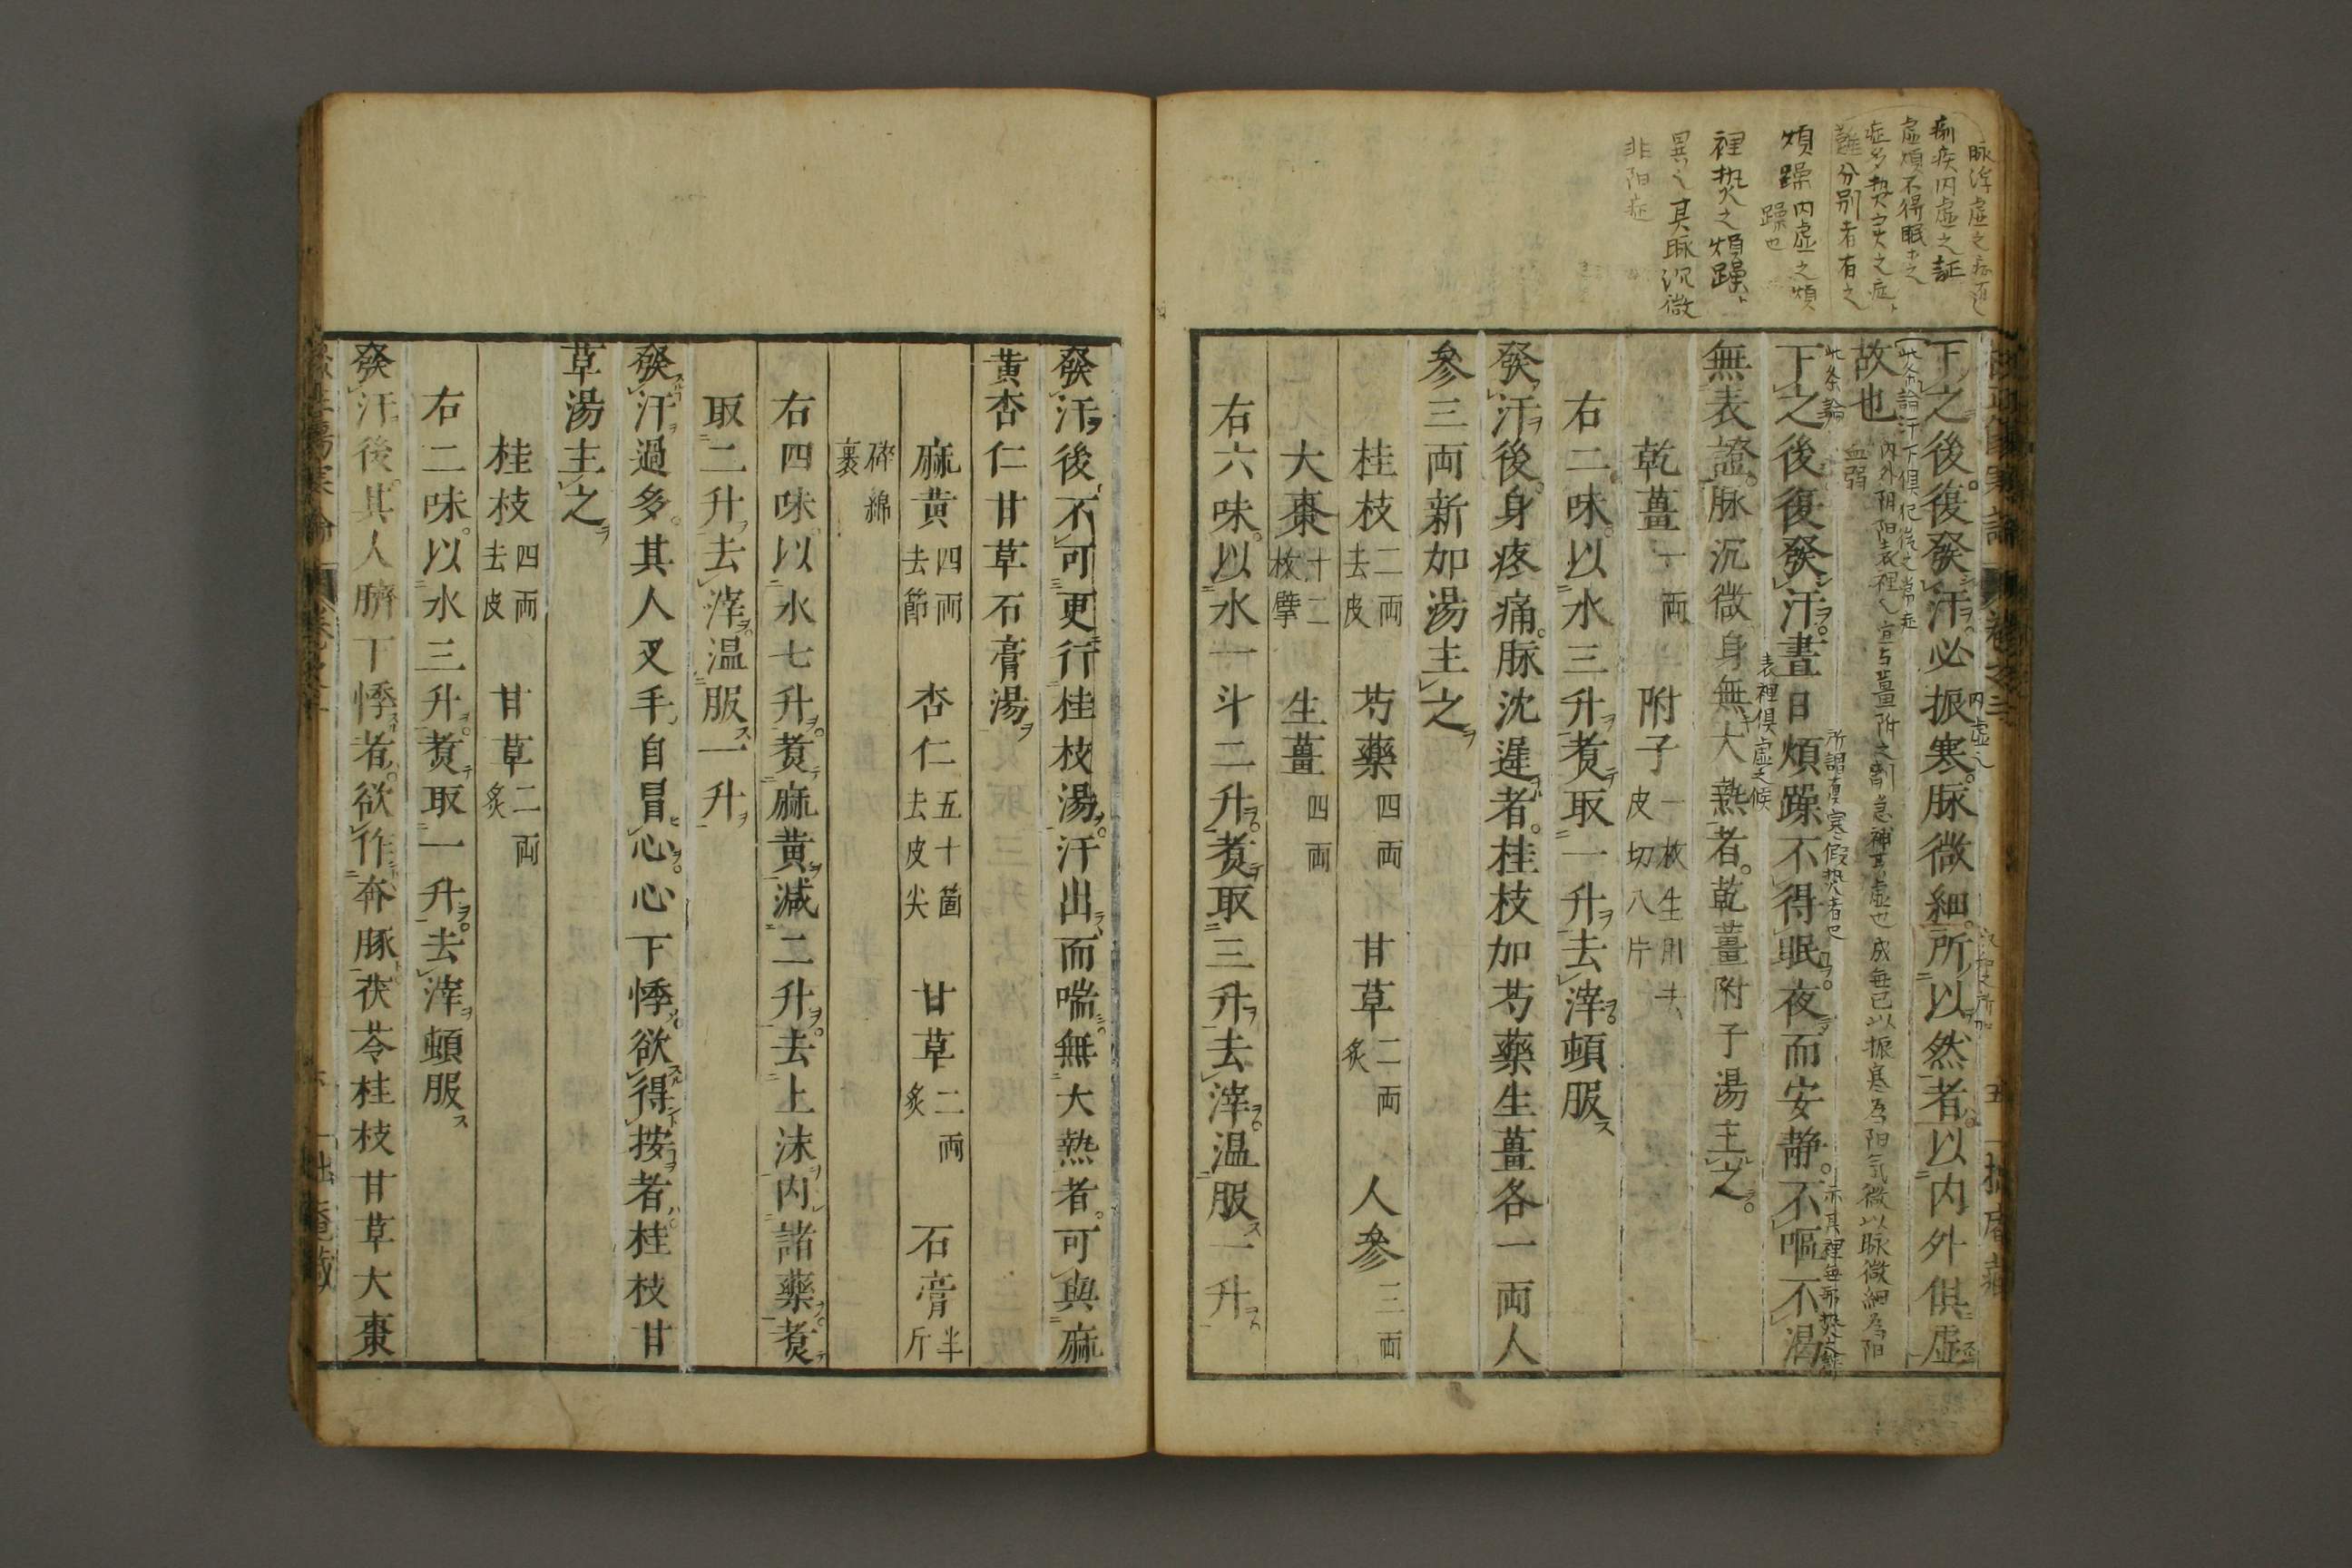 下之後復發汗必振寒脉微細所以然者以内外俱虛
故也
下之後復發汗晝日煩躁不得眠夜而安静不嘔不渴
無表證脉沉微身無大熱者乾薑附子湯主之
乾薑一両 附子一枚生用去皮切八片
右二味以水三升煑取一升去滓頓服
發汗後身疼痛脉沈遲者桂枝加芍藥生薑各一両人
參三両新加湯主之
桂枝二両去皮 芍藥四両 甘草二両炙 人參三両
大棗十二枚擘 生薑四両
右六味以水一斗二升煑取三升去滓温服一升
發汗後不可更行桂枝湯汗出而喘無大熱者可與麻
黄杏仁甘草石膏湯
麻黄四両去節 杏仁五十箇去皮尖 甘草二両炙 石膏半斤
碎綿裹
右四味以水七升煑麻黄減二升去上沫内諸藥煑
取二升去滓温服一升
發汗過多其人叉手自冒心心下悸欲得按者桂枝甘
草湯主之
桂枝四両去皮 甘草二両炙
右二味以水三升煑取一升去滓頓服
發汗後其人臍下悸者欲作奔豚茯苓桂枝甘草大棗
煩躁内虛之煩
躁也
裡热之煩躁ト
異之其脉沉微
非阳症
痢疾内虛之証
難分別者有之
此条論
表裡俱虛之候
血弱